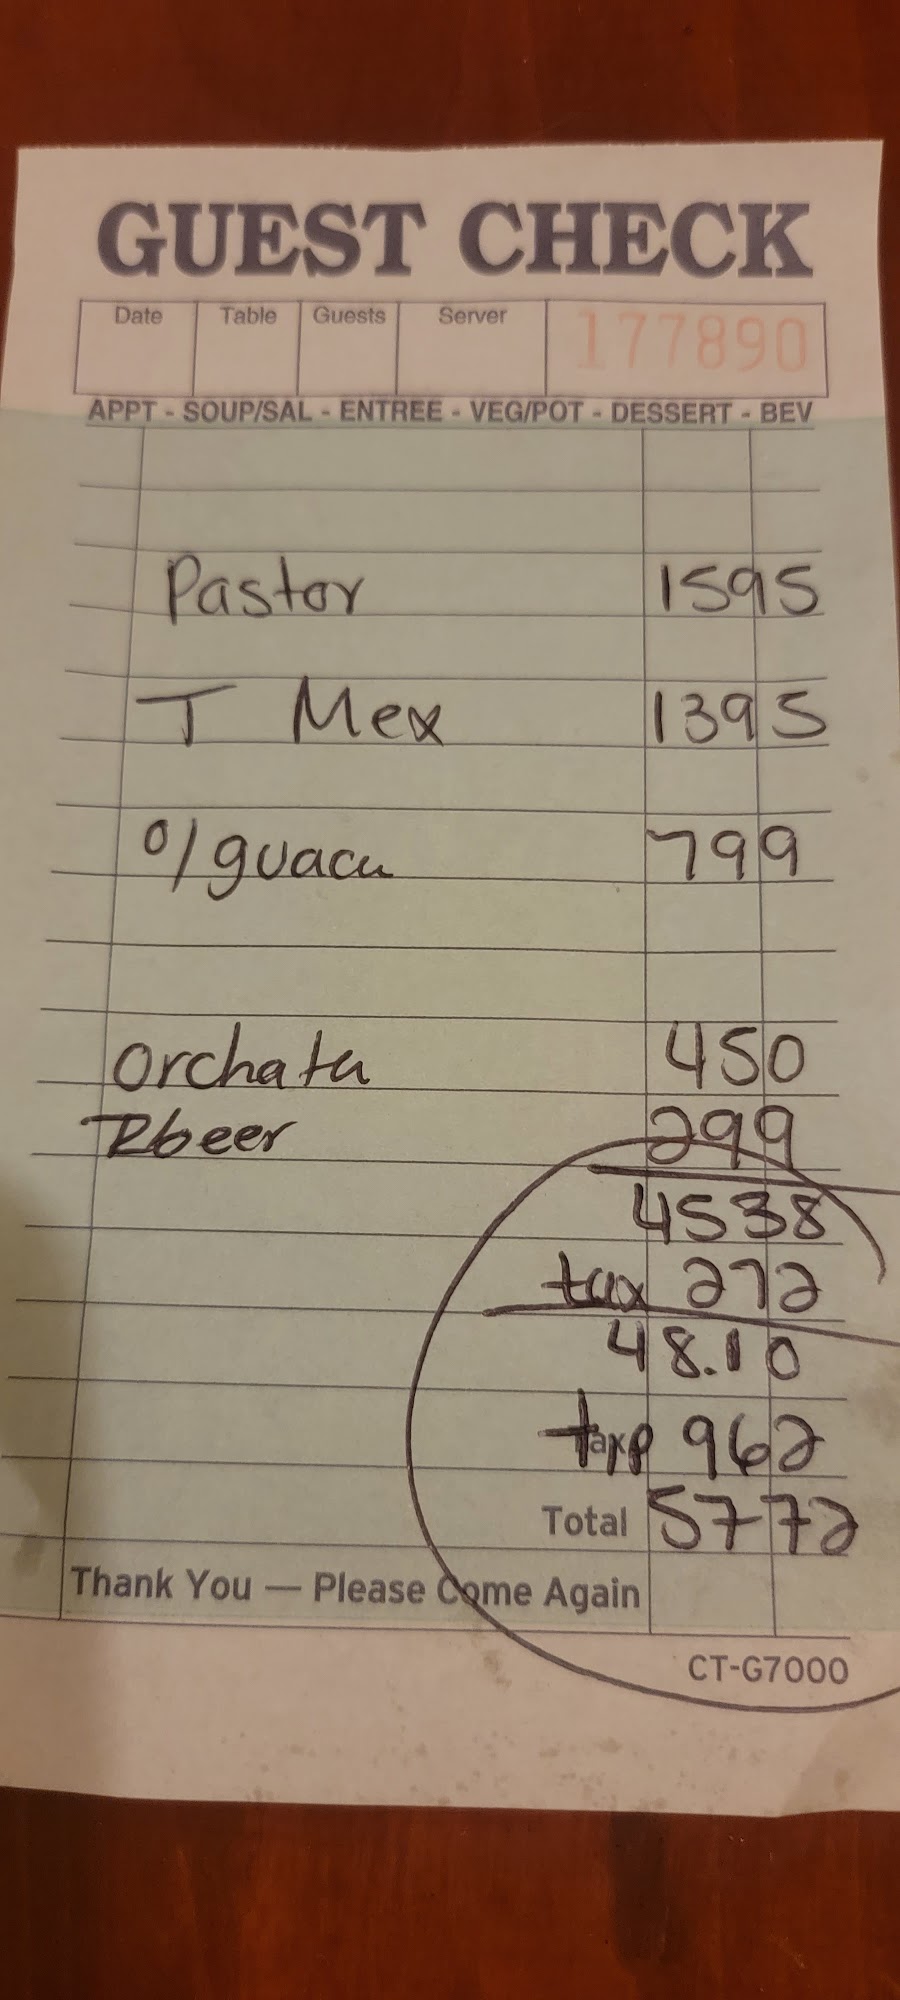 GUEST CHECK
Date Table Guests Server 177890
APPT - SOUP/SAL - ENTREE - VEG/POT - DESSERT - BEV
Pastor 1595
T Mex 1395
O/guacu 799
Orchata 450
Rbeer 299
4538
tax 272
48.10
Tax 962
Total 5772
Thank You — Please Come Again
CT-G7000